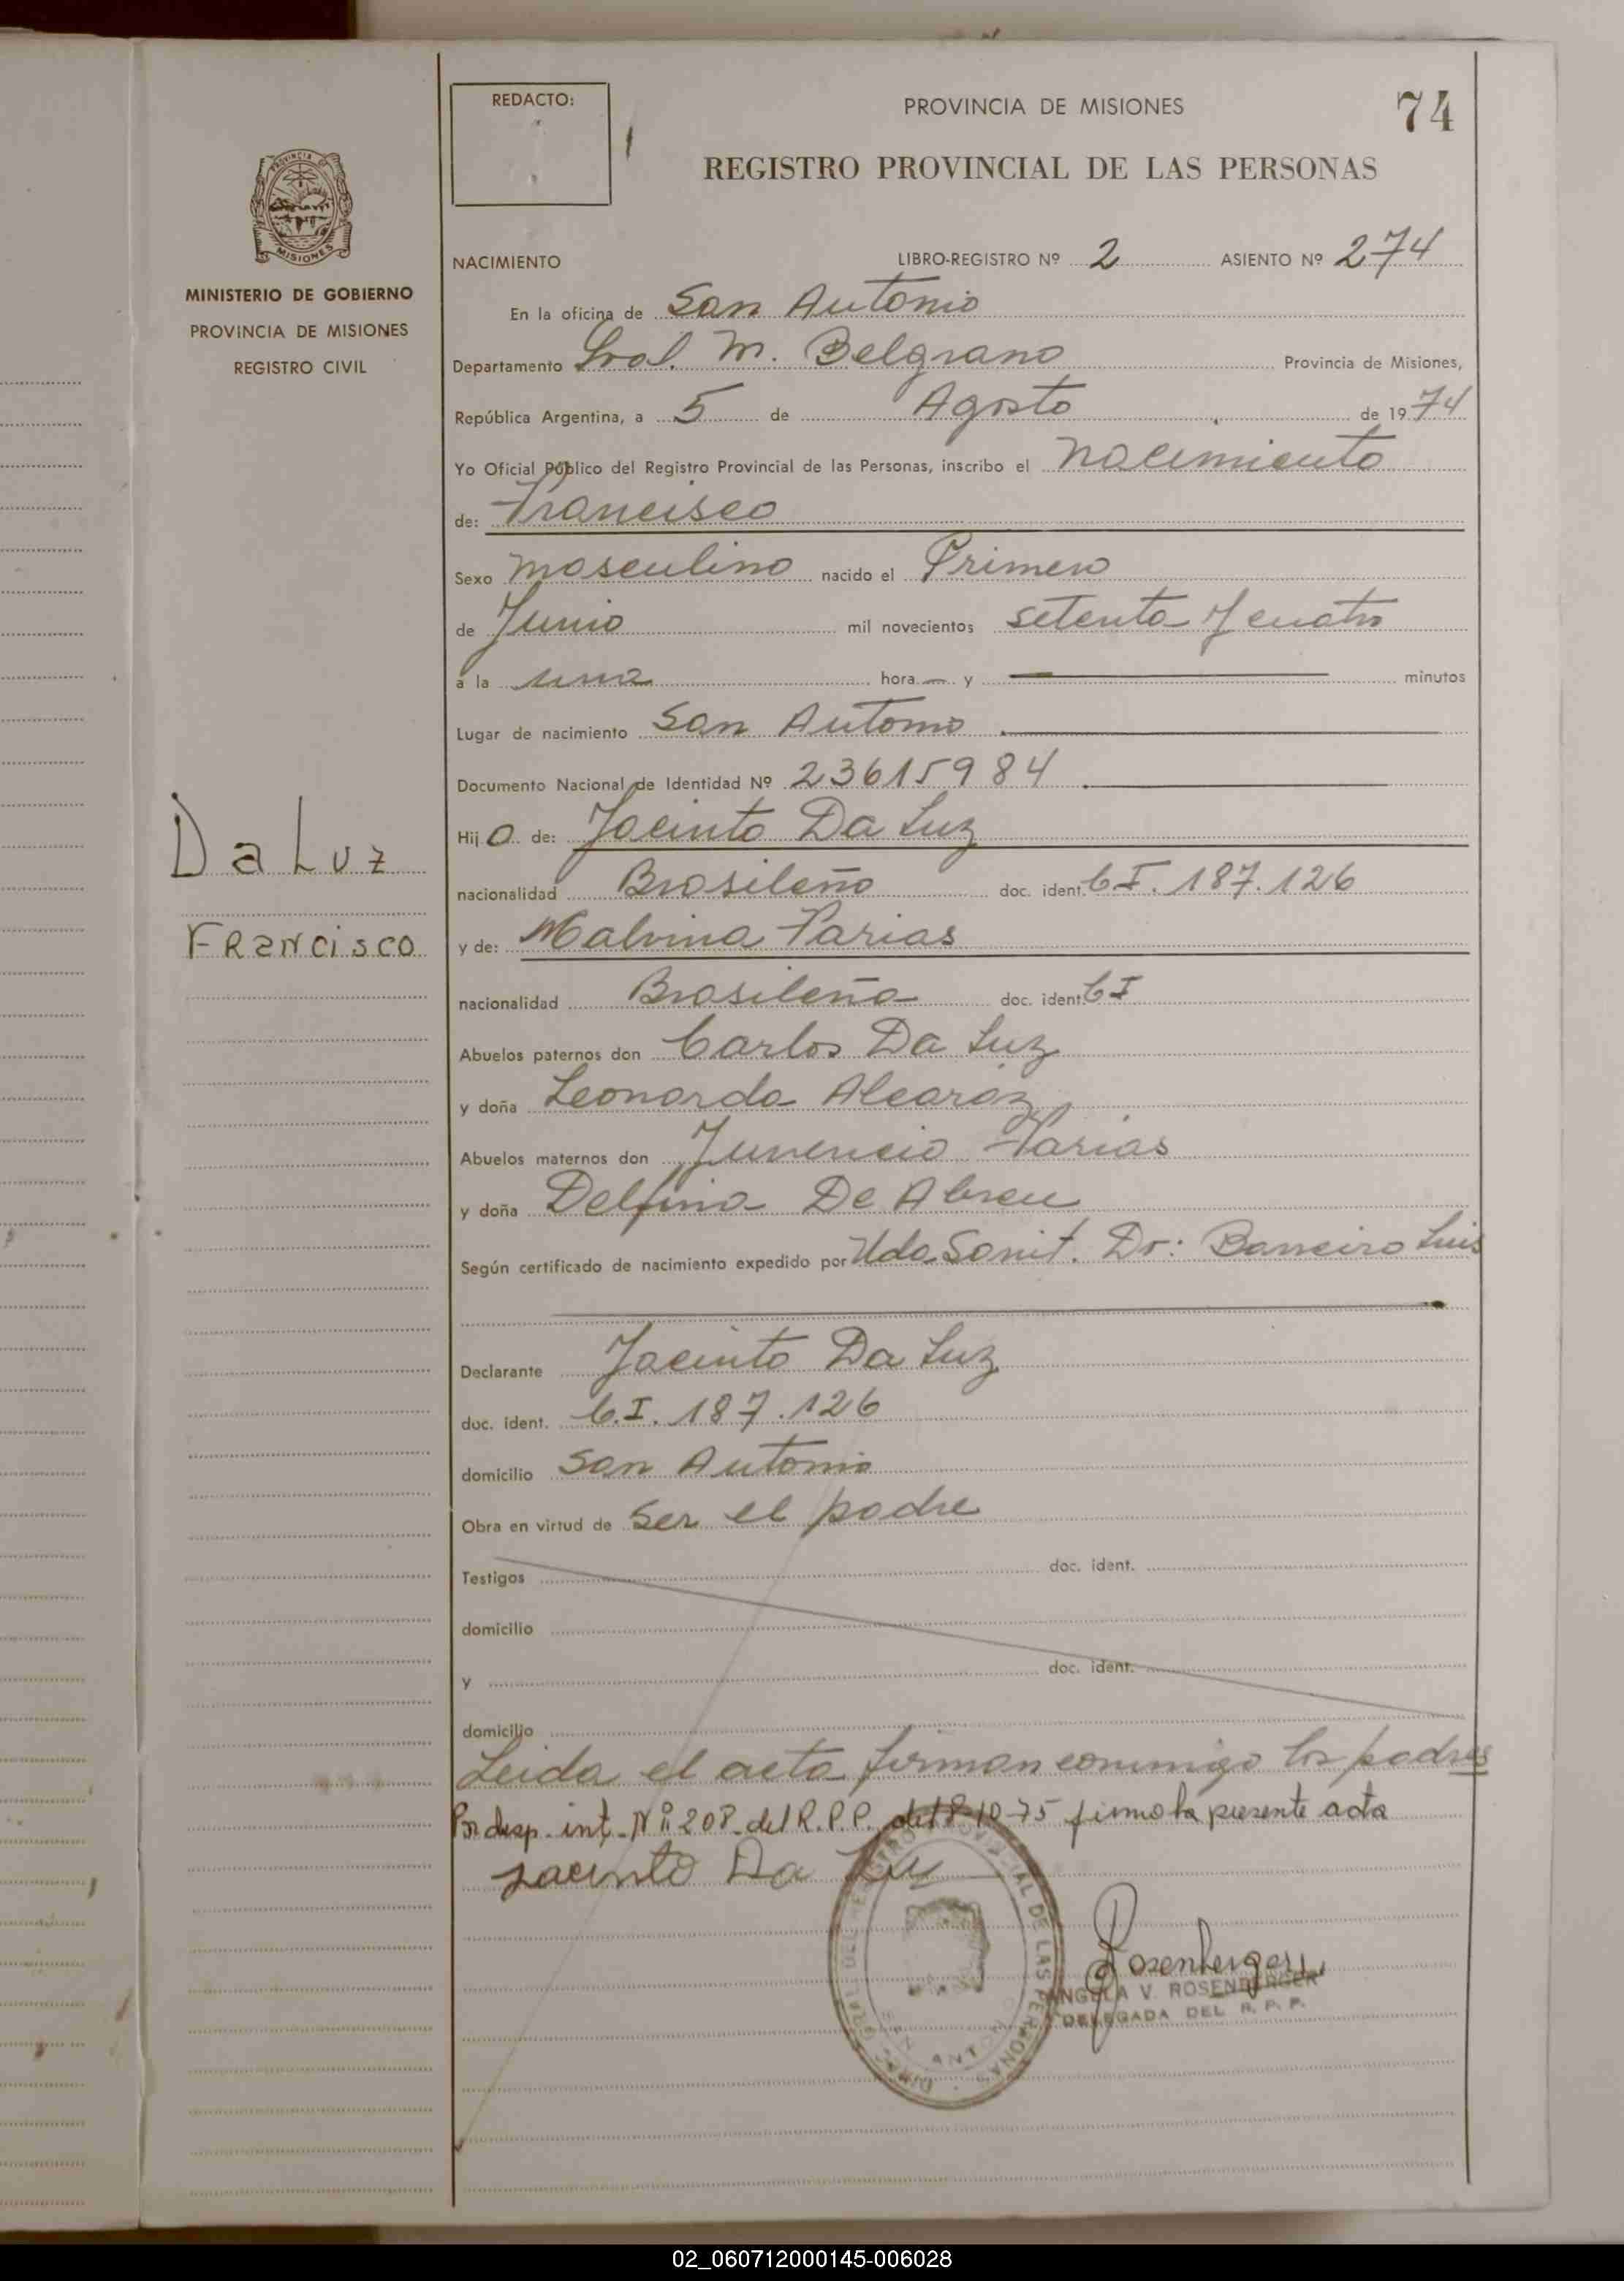 REDACTO:
PROVINCIA DE MISIONES
74
REGISTRO PROVINCIAL DE LAS PERSONAS
PROVINCIA DE
MISIONES
MINISTERIO DE GOBIERNO
PROVINCIA DE MISIONES
REGISTRO CIVIL
NACIMIENTO LIBRO-REGISTRO Nº 2 ASIENTO Nº 274
En la oficina de San Antonio
Departamento Gral. M. Belgrano Provincia de Misiones,
República Argentina, a 5 de Agosto de 1974
Yo Oficial Público del Registro Provincial de las Personas, inscribo el nacimiento
de: Francisco
Sexo masculino nacido el Primero
de Junio mil novecientos setenta y cuatro
a la una hora — y — minutos
Lugar de nacimiento San Antonio
Documento Nacional de Identidad Nº 23615984
Da Luz
Francisco
Hijo de: Jacinto Da Luz
nacionalidad Brasileño doc. ident. C.I. 187.126
y de: Malvina Farias
nacionalidad Brasileña doc. ident. C I
Abuelos paternos don Carlos Da Luz
y doña Leonarda Alcaraz
Abuelos maternos don Juvencio Farias
y doña Delfina De Abreu
Según certificado de nacimiento expedido por Uda. Sanit. Dr: Barreiro Luis
Declarante Jacinto Da Luz
doc. ident. C.I. 187.126
domicilio San Antonio
Obra en virtud de Ser el padre
Testigos doc. ident.
domicilio
y doc. ident.
domicilio
Leida el acta firman conmigo los padres
Por disp. int. Nº 208 del R.P.P. del 8-10-75 firmo la presente acta
Jacinto Da Luz
Rosenberger
ANGELA V. ROSENBERGER
DELEGADA DEL R. P. P.
02_060712000145-006028